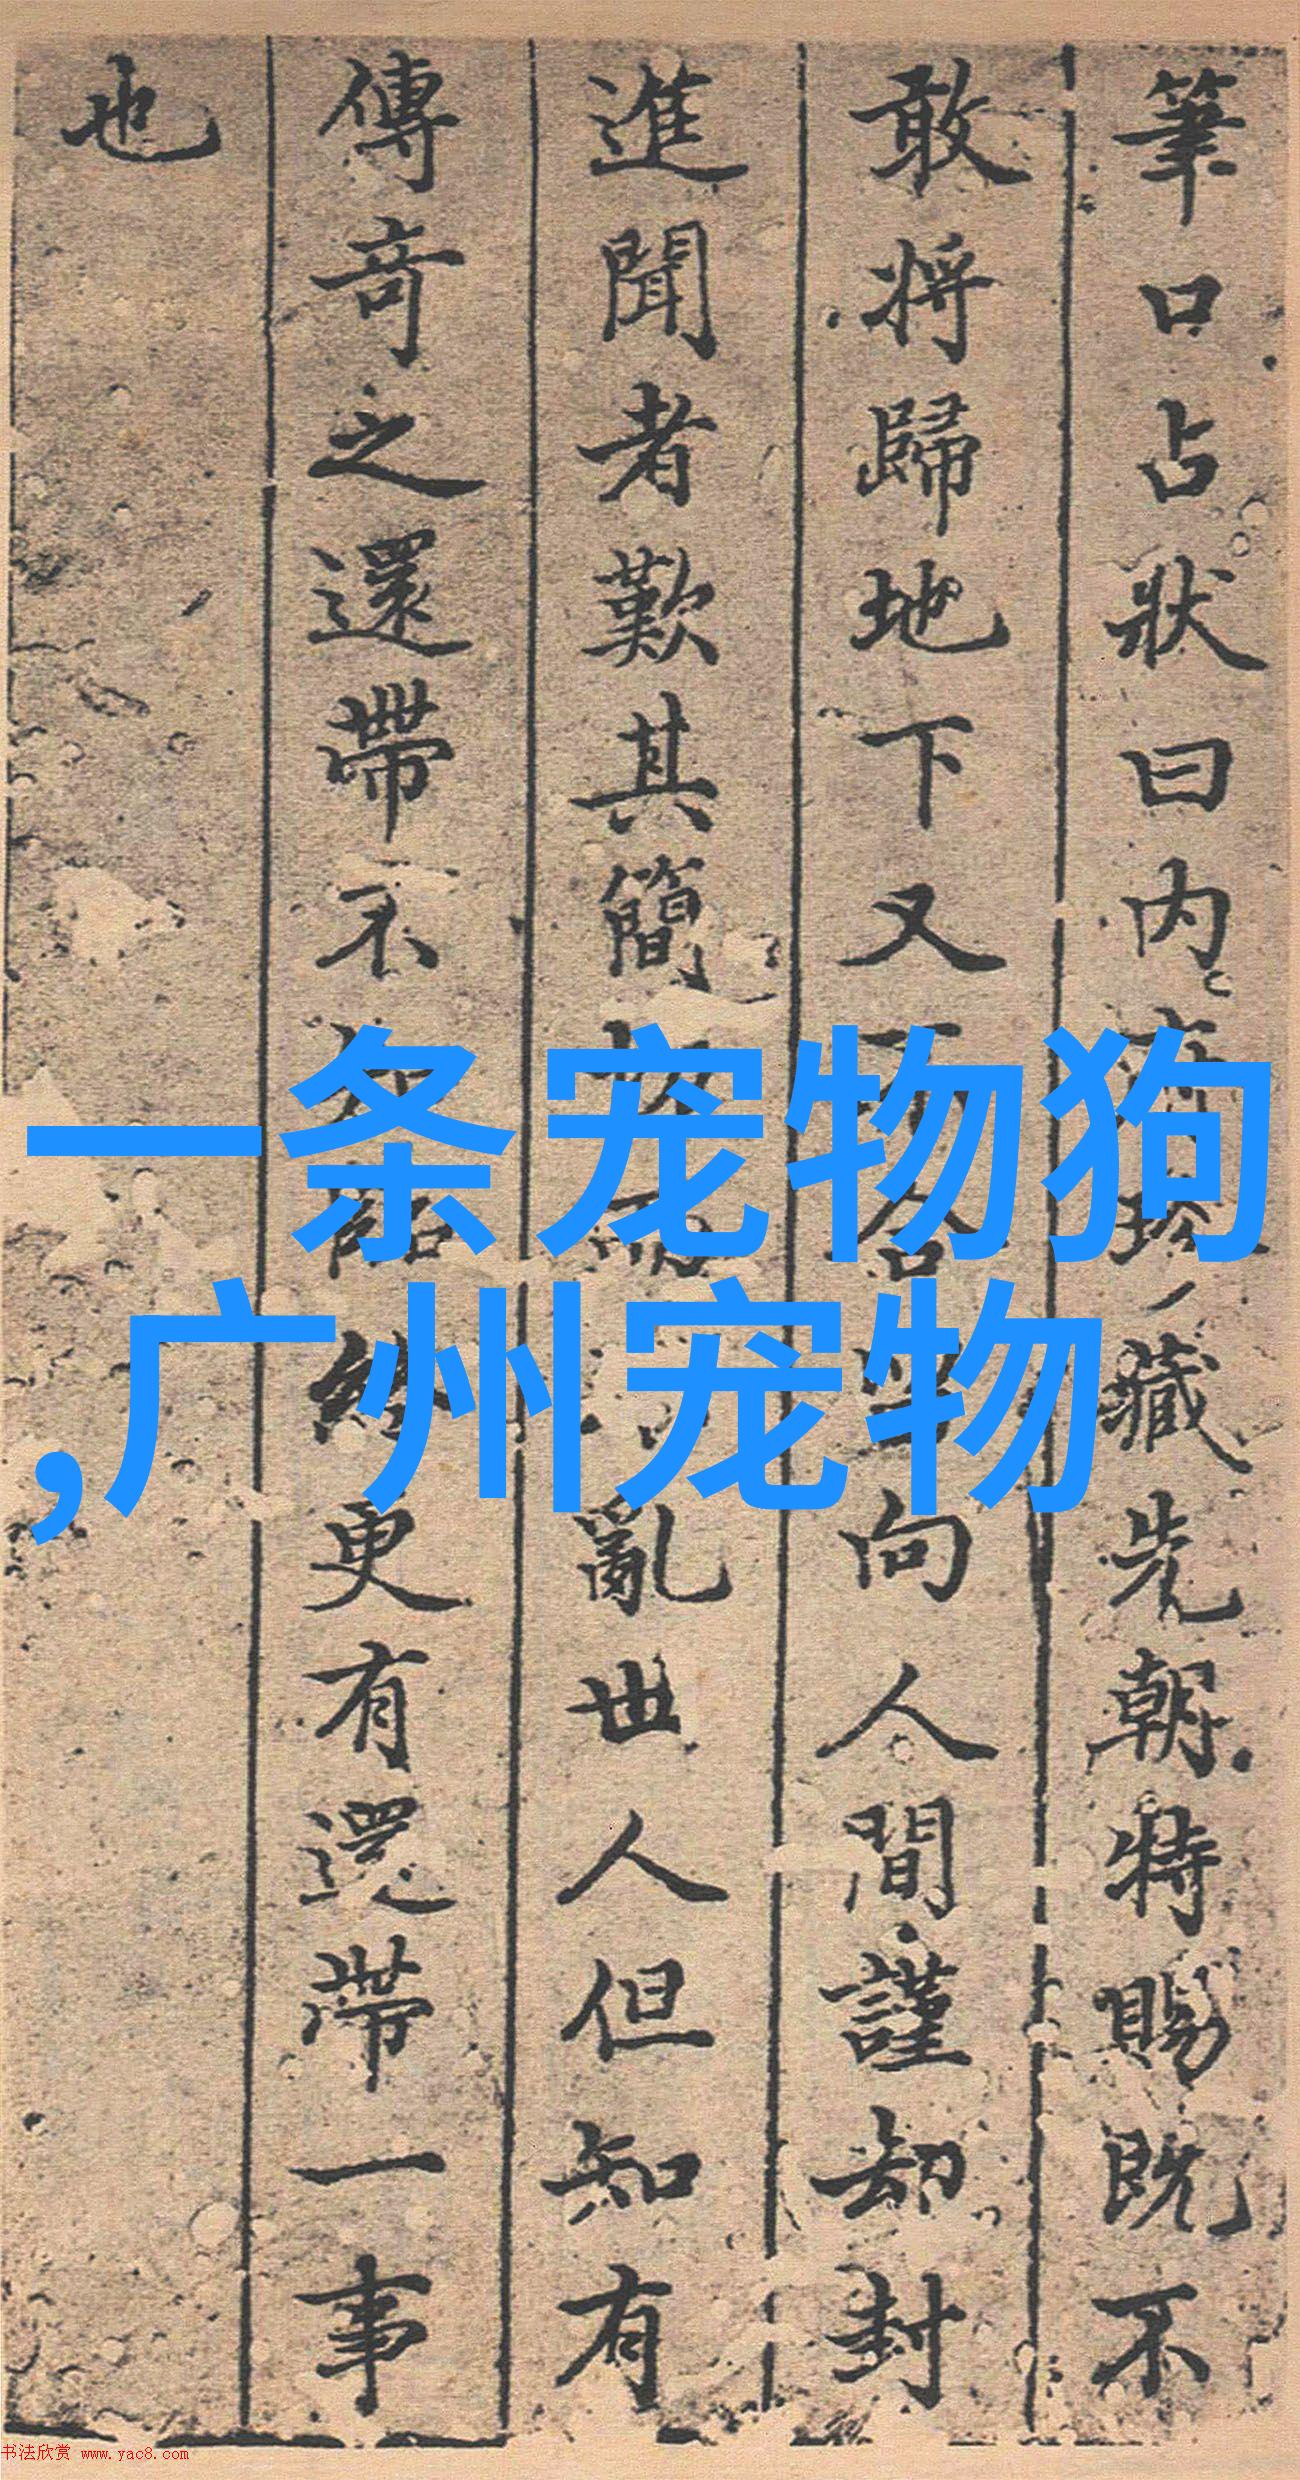 筆口占狀曰内珍藏先朝特賜既不
敢將歸地下又不合向人間謹却封
進聞者歎其簡亂世人但知有
傳奇之還帶不更有還帶一事
也
一条宠物狗
,广州宠物
书法欣赏 www.yac8.com